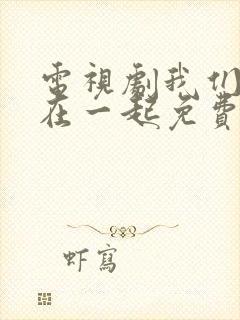 電視劇我们
在一起免費
虾寫